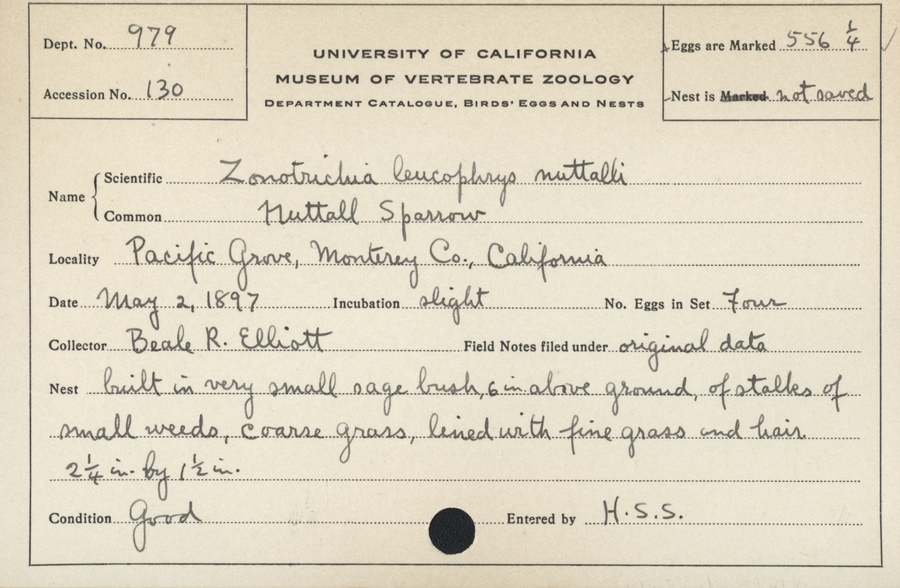 Dept. No. 979
Accession No. 130
UNIVERSITY OF CALIFORNIA
MUSEUM OF VERTEBRATE ZOOLOGY
DEPARTMENT CATALOGUE, BIRDS' EGGS AND NESTS
Eggs are Marked 556 1/4
Nest is Marked not saved
Name { Scientific Zonotrichia leucophrys nuttalli
Common Nuttall Sparrow
Locality Pacific Grove, Monterey Co., California
Date May 2, 1897 Incubation slight No. Eggs in Set Four
Collector Beale R. Elliott Field Notes filed under original data
Nest built in very small sage bush, 6 in. above ground, of stalks of
small weeds, coarse grass, lined with fine grass and hair
2 1/4 in. by 1 1/2 in.
Condition Good Entered by H.S.S.